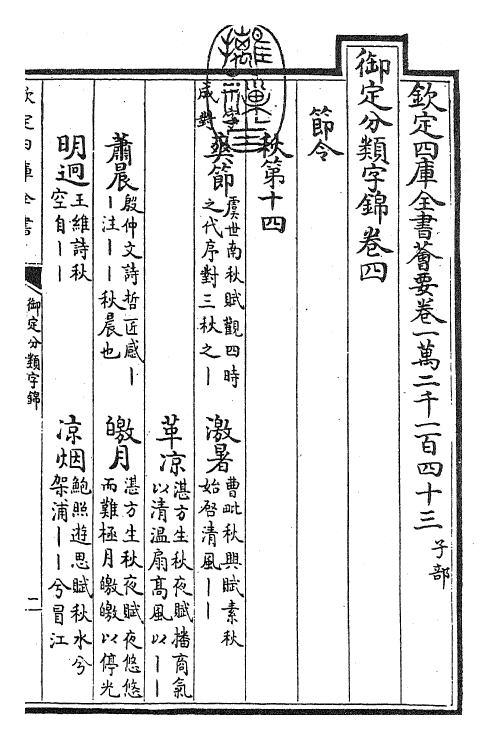 欽定四庫全書薈要卷一萬二千一百四十三 子部
御定分類字錦卷四
節令
秋第十四
二字
成對
爽節 虞世南秋賦觀四時
之代序對三秋之丨
激暑 曹毗秋興賦素秋
始啓清風丨丨
革凉 湛方生秋夜賦播商氣
以清溫扇高風以丨丨
蕭晨 殷仲文詩哲匠感丨
丨注丨丨秋晨也
皦月 湛方生秋夜賦夜悠悠
而難極月皦皦以停光
明迥 王維詩秋
空自丨丨
凉烟 鮑照遊思賦秋水兮
架浦丨丨兮冒江
欽定四庫全書
御定分類字錦